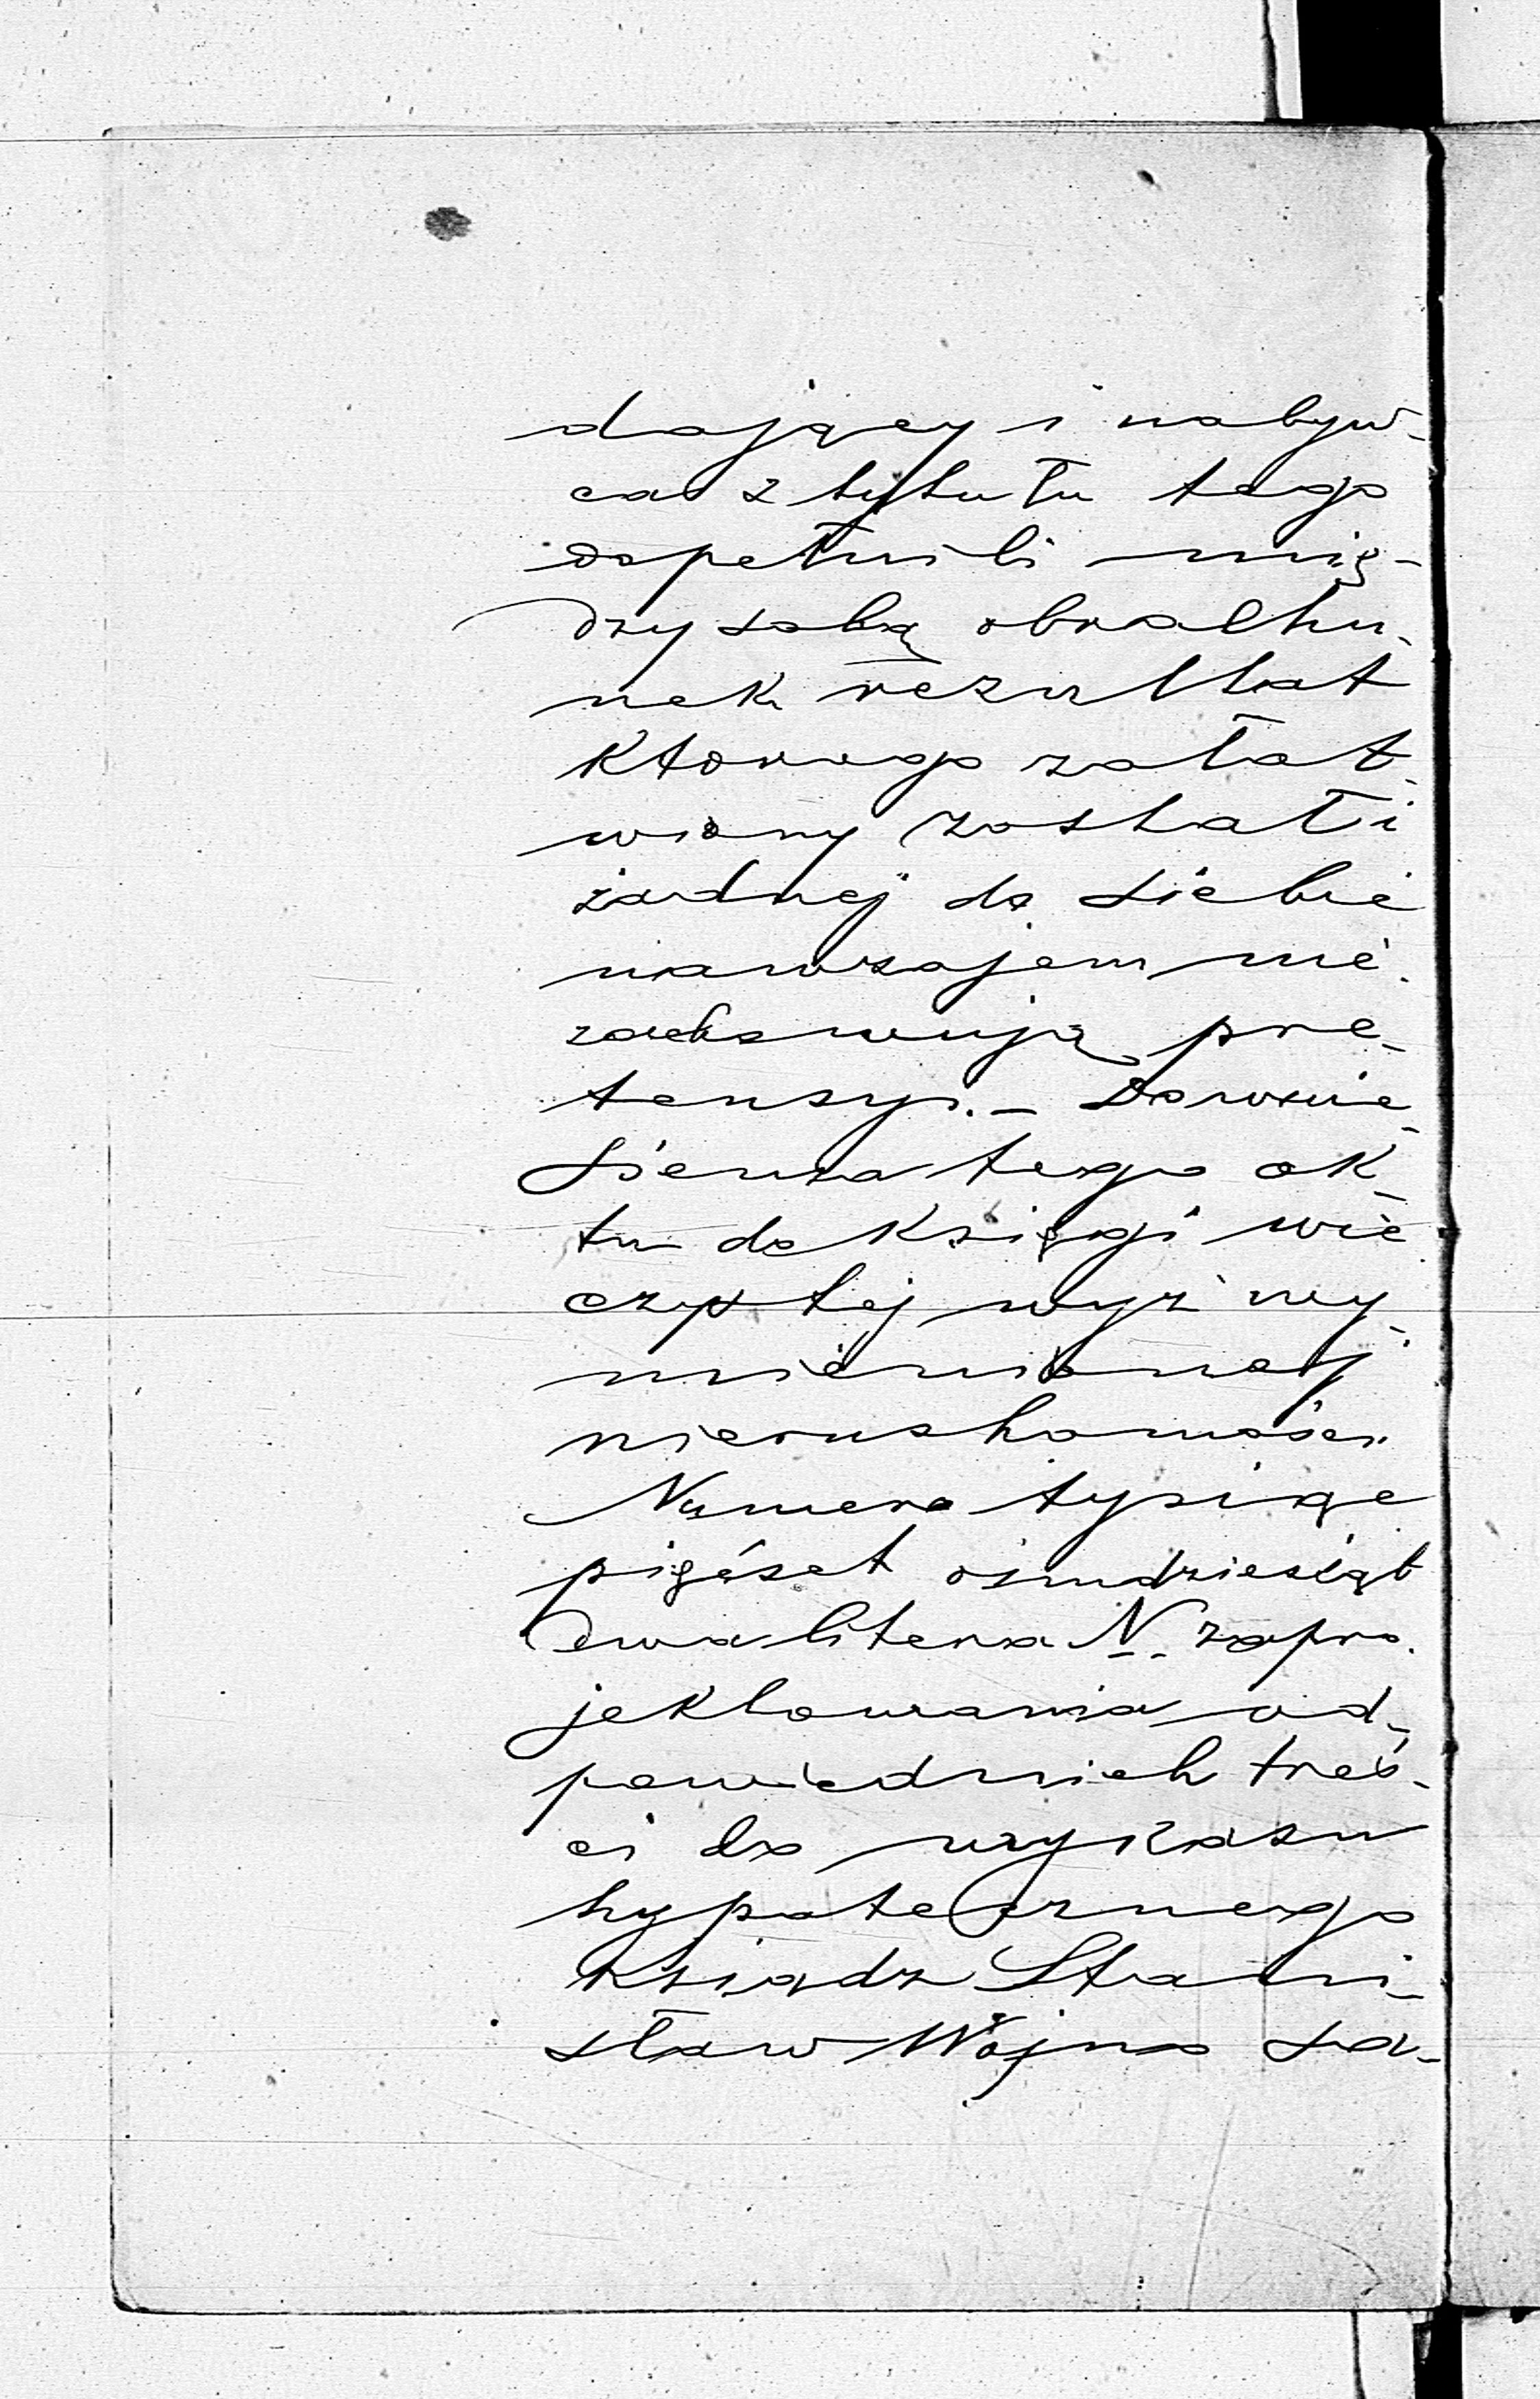 dający i nabyw-
ca z tytułu tego
dopełnili mię-
dzy sobą obrachu-
nek rezultat
którego załat-
wiony został i
żadnej do siebie
nawzajem nie
zachowują pre-
tensyi. – Do wnie-
sienia tego ak-
tu do Księgi wie
czystej wyż wy-
mienionej
nieruchomości
Numera tysiąc
pięćset ośmdziesiąt
dwa litera N. zapro-
jektowania od-
powiednich treś-
ci do wykazu
hypotecznego
Ksiądz Stani-
sław Wojno sa-